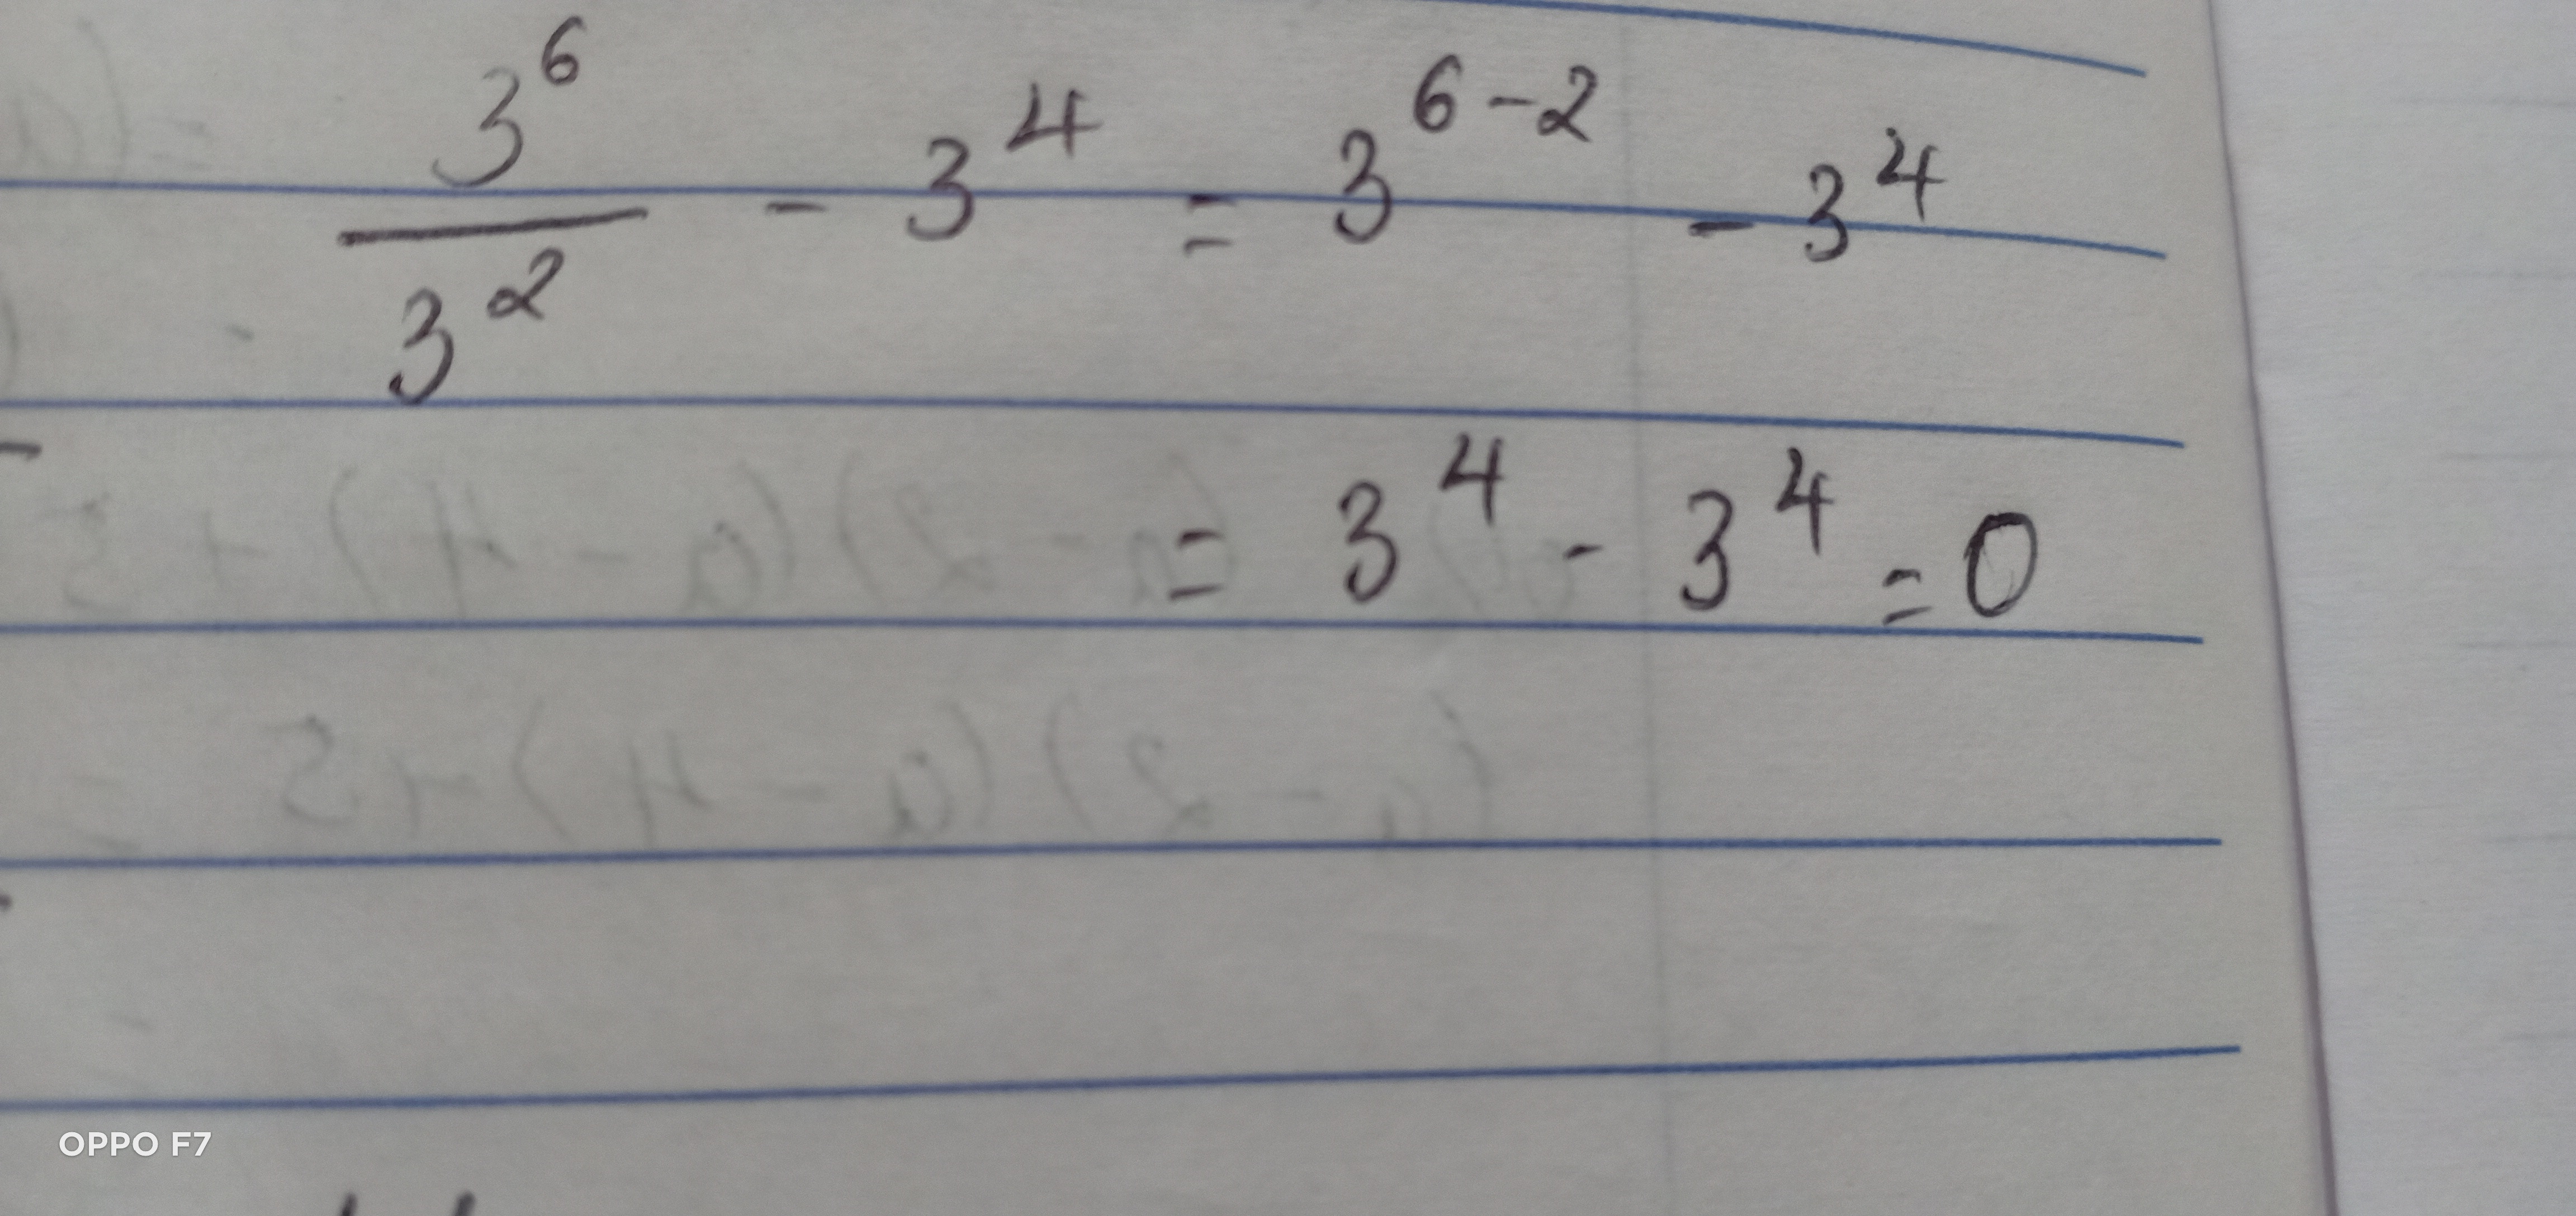 3^6/3^2 - 3^4 = 3^{6-2} - 3^4
= 3^4 - 3^4 = 0
OPPO F7